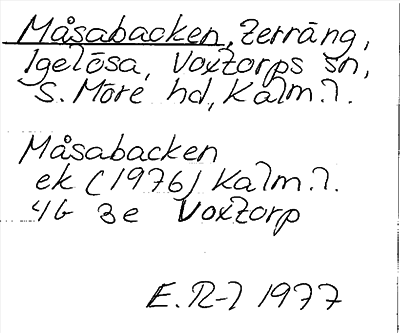 Måsabacken, Terräng,
Igelösa, Voxtorps sn,
S. Möre hd, Kalm. l.
Måsabacken
ek (1976) Kalm. l.
4G 3e Voxtorp
E. R-l 1977